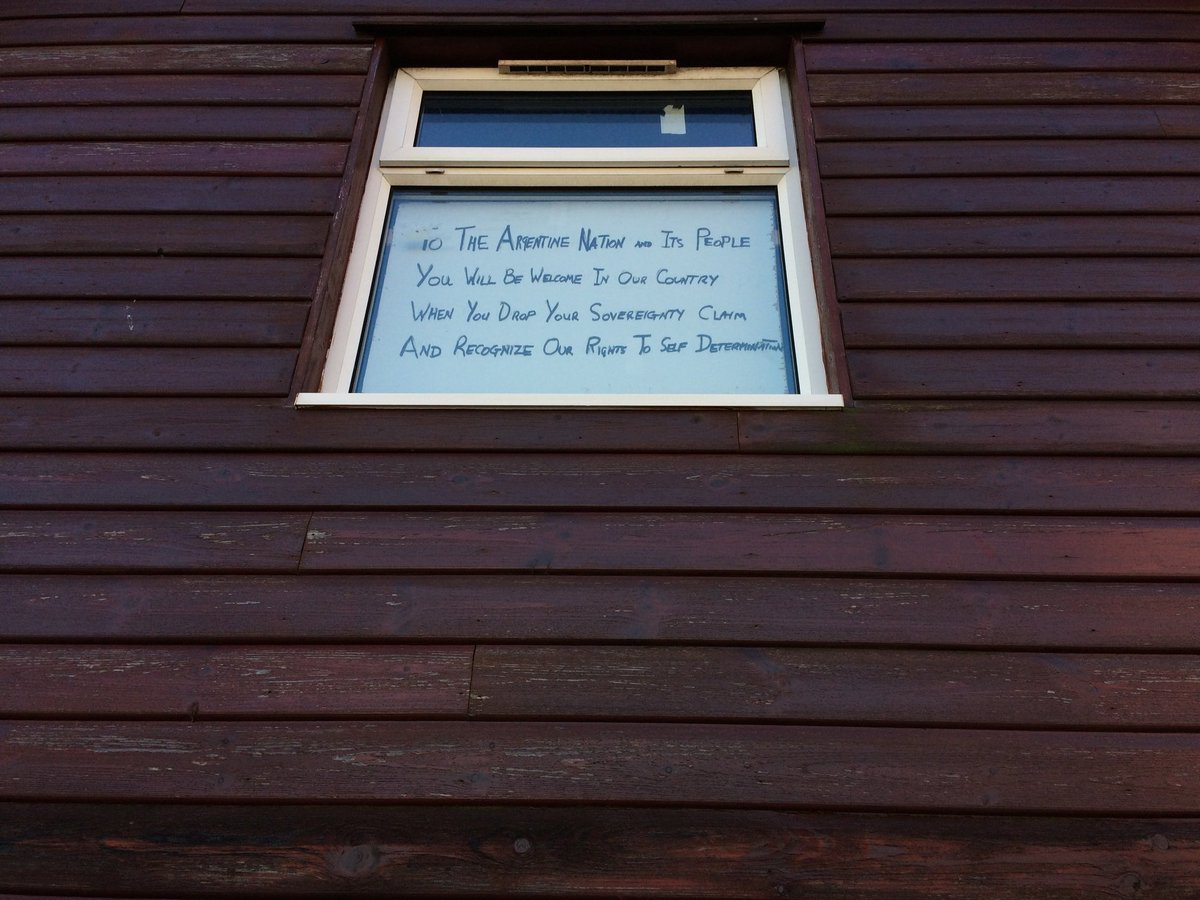 TO THE ARGENTINE NATION AND ITS PEOPLE
YOU WILL BE WELCOME IN OUR COUNTRY
WHEN YOU DROP YOUR SOVEREIGNTY CLAIM
AND RECOGNIZE OUR RIGHTS TO SELF DETERMINATION